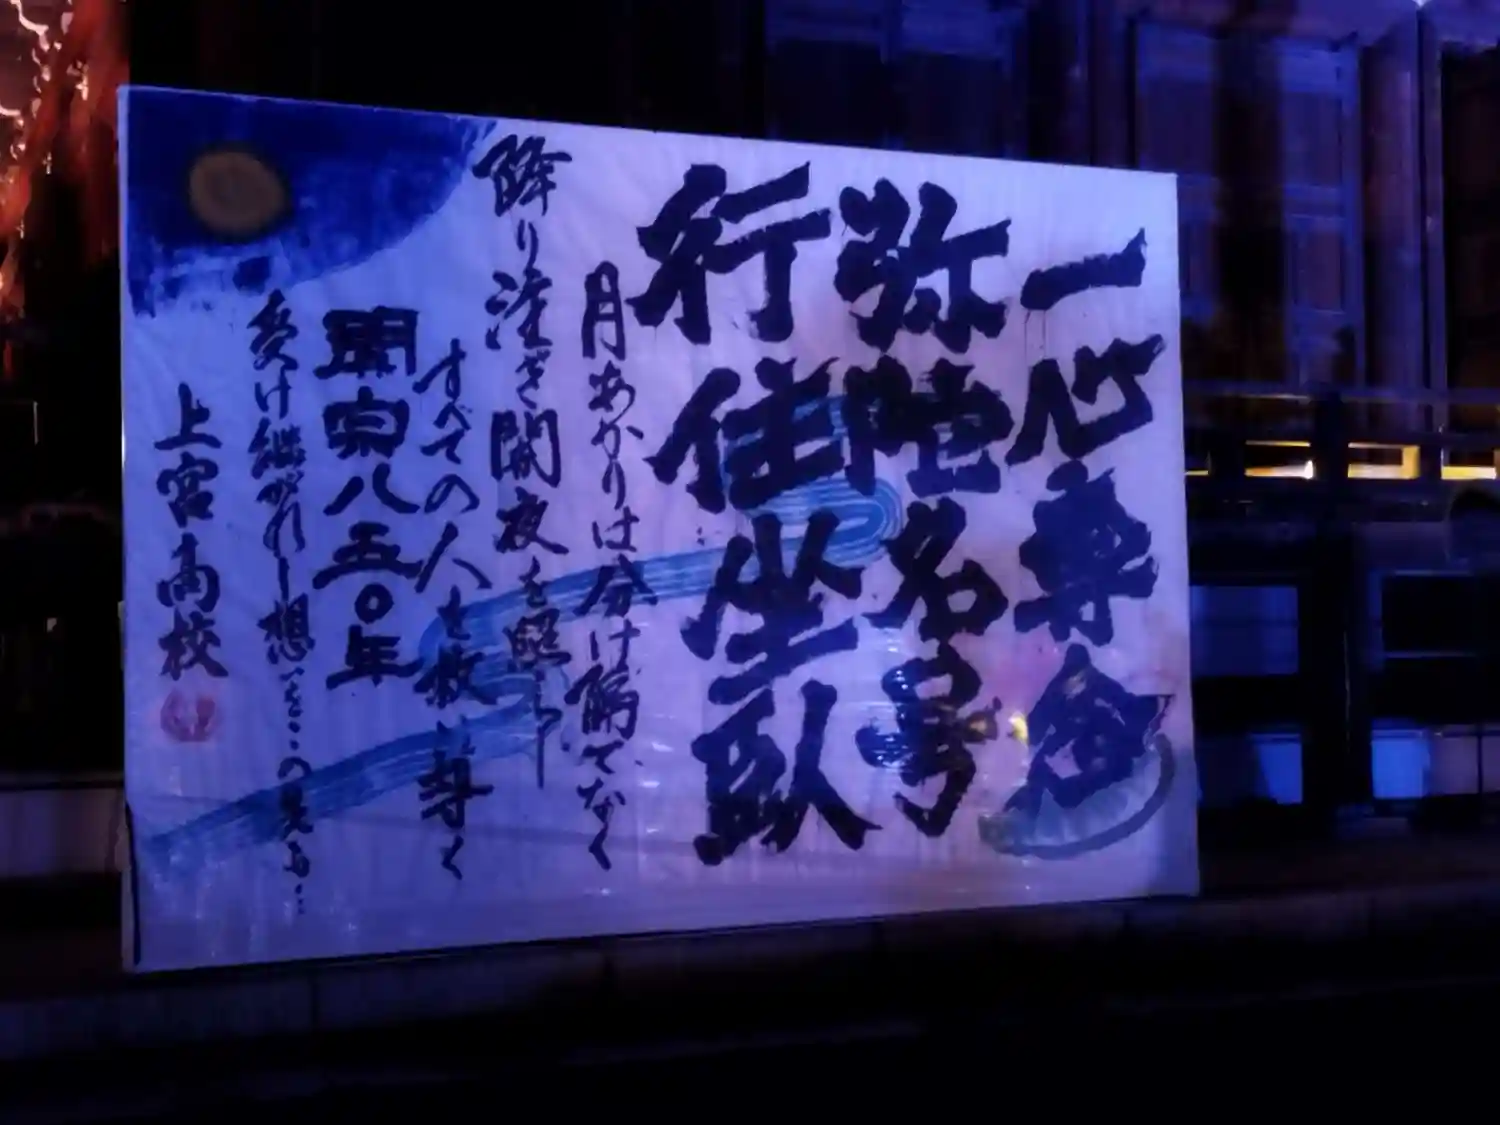 一心専念
弥陀名号
行住坐臥
月あかりは分け隔てなく
降り注ぎ闇夜を照らし
すべての人を救い導く
開宗八五〇年
受け継がれし想い
上宮高校